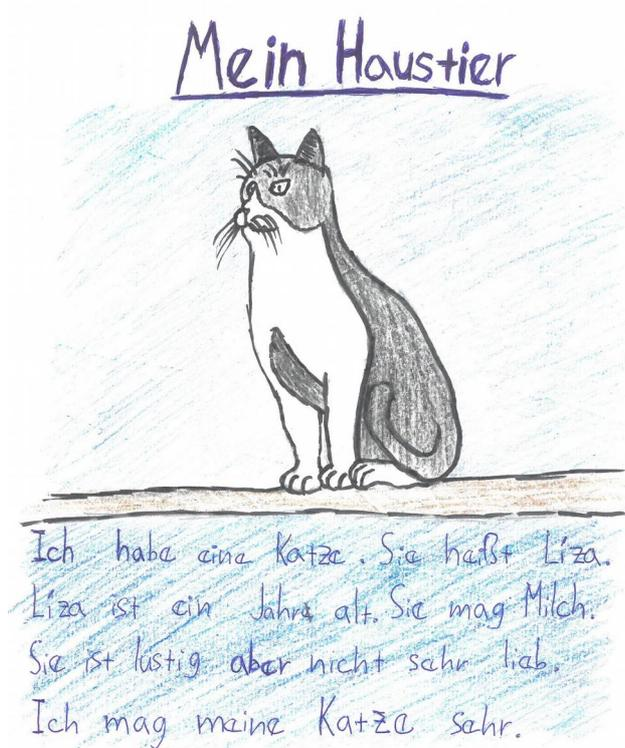 Mein Haustier
Ich habe eine Katze. Sie heißt Liza.
Liza ist ein Jahr alt. Sie mag Milch.
Sie ist lustig aber nicht sehr lieb.
Ich mag meine Katze sehr.